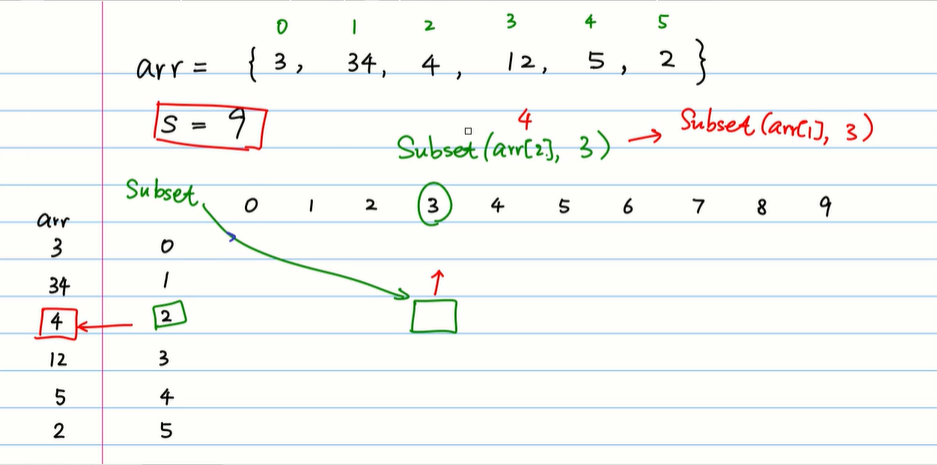 0 1 2 3 4 5
arr = { 3, 34, 4, 12, 5, 2 }
S = 9
4
Subset(arr[2], 3) → Subset(arr[1], 3)
Subset 0 1 2 3 4 5 6 7 8 9
arr
3 0
34 1
4 2
12 3
5 4
2 5